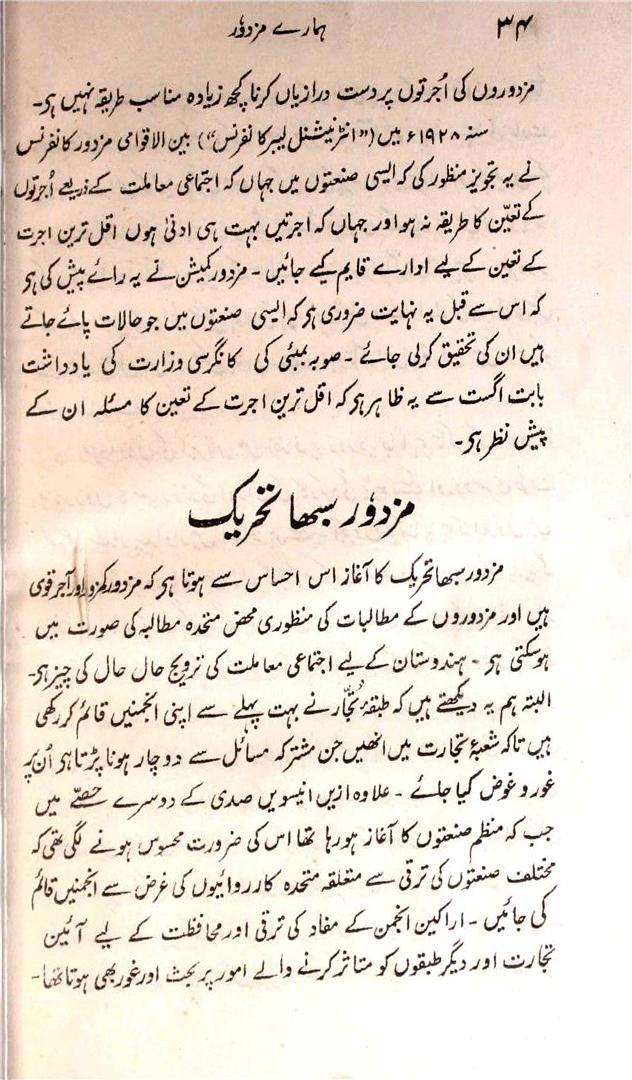 ۳۴ ہمارے مزدور
مزدوروں کی اُجرتوں پر دست درازیاں کرنا کچھ زیادہ مناسب طریقہ نہیں ہو۔
سنہ ۱۹۲۸ء میں (”انٹرنیشنل لیبر کانفرنس“) بین الاقوامی مزدور کانفرنس
نے یہ تجویز منظور کی کہ ایسی صنعتوں میں جہاں کہ اجتماعی معاملت کے ذریعے اُجرتوں
کے تعیّن کا طریقہ نہ ہو اور جہاں کہ اجرتیں بہت ہی ادنیٰ ہوں اقل ترین اجرت
کے تعین کے لیے ادارے قایم کیے جائیں۔ مزدور کمیشن نے یہ رائے پیش کی ہو
کہ اس سے قبل یہ نہایت ضروری ہو کہ ایسی صنعتوں میں جو حالات پائے جاتے
ہیں ان کی تحقیق کرلی جائے۔ صوبہ بمبئی کی کانگرسی وزارت کی یادداشت
بابت اگست سے یہ ظاہر ہو کہ اقل ترین اجرت کے تعین کا مسئلہ ان کے
پیش نظر ہو۔
مزدور سبھا تحریک
مزدور سبھا تحریک کا آغاز اس احساس سے ہوتا ہو کہ مزدور کمزور اور آجر قوی
ہیں اور مزدوروں کے مطالبات کی منظوری محض متحدہ مطالبہ کی صورت میں
ہوسکتی ہو۔ ہندوستان کے لیے اجتماعی معاملت کی ترویج حال حال کی چیز ہو۔
البتہ ہم یہ دیکھتے ہیں کہ طبقۂ تُجّار نے بہت پہلے سے اپنی انجمنیں قائم کر رکھی
ہیں تاکہ شعبۂ تجارت میں انھیں جن مشترکہ مسائل سے دوچار ہونا پڑتا ہو اُن پر
غور و غوض کیا جائے۔ علاوہ ازیں انیسویں صدی کے دوسرے حصّے میں
جب کہ منظم صنعتوں کا آغاز ہورہا تھا اس کی ضرورت محسوس ہونے لگی تھی کہ
مختلف صنعتوں کی ترقی سے متعلقہ متحدہ کارروائیوں کی غرض سے انجمنیں قائم
کی جائیں۔ اراکین انجمن کے مفاد کی ترقی اور محافظت کے لیے آئین
تجارت اور دیگر طبقوں کو متاثر کرنے والے امور پر بحث اور غور بھی ہوتا تھا۔